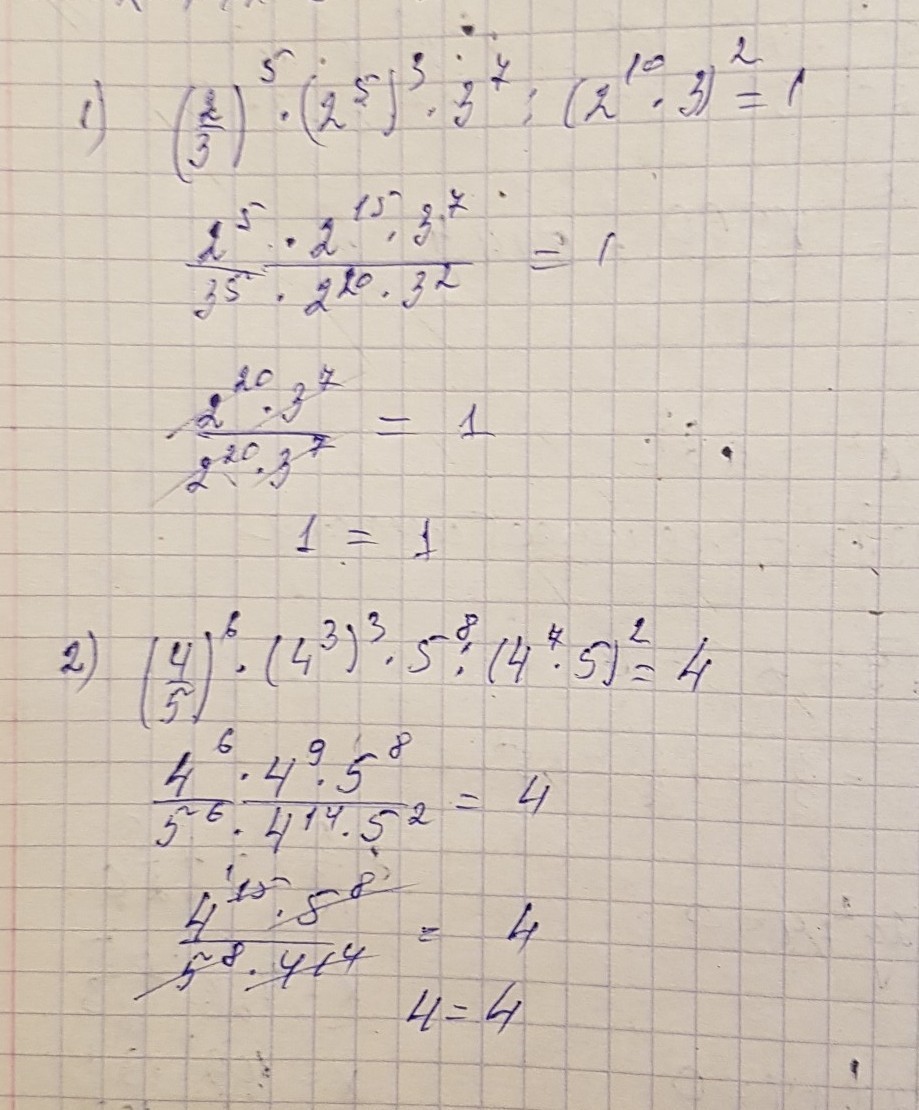 1) (2/3)^5 · (2^5)^3 · 3^7 : (2^10 · 3)^2 = 1
2^5/3^5 · 2^15 · 3^7/2^20 · 3^2 = 1
2^20 · 3^7/2^20 · 3^7 = 1
1 = 1
2) (4/5)^6 · (4^3)^3 · 5^8 : (4^7 · 5)^2 = 4
4^6/5^6 · 4^9 · 5^8/4^14 · 5^2 = 4
4^15 · 5^8/5^8 · 4^14 = 4
4 = 4